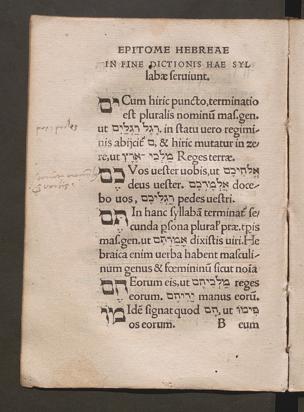 EPITOME HEBREAE
IN FINE DICTIONIS HAE SYL
labæ seruiunt.
ים Cum hiric puncto, terminatio
est pluralis nominũ mas.gen.
ut רֶגֶל רַגְלַיִם. in statu uero regimi-
nis abijcit ם, & hiric mutatur in ze-
re, ut מַלְכֵי אֶרֶץ Reges terræ.
כֶם Vos uester uobis, ut אֱלֹהֵיכֶם
deus uester. doce-
bo uos, רַגְלֵיכֶם pedes uestri.
תֶם In hanc syllabã terminat se/
cunda psona plural' præ.tpis
mas.gen. ut אֲמַרְתֶּם dixistis uiri. He
braica enim uerba habent masculi-
num genus & fœmininũ sicut noĩa
הֶם Eorum eis, ut מַלְכֵיהֶם reges
eorum. יְדֵיהֶם manus eorũ.
מוֹ Idẽ signat quod הֶם, ut פִּימוֹ
os eorum. B eum